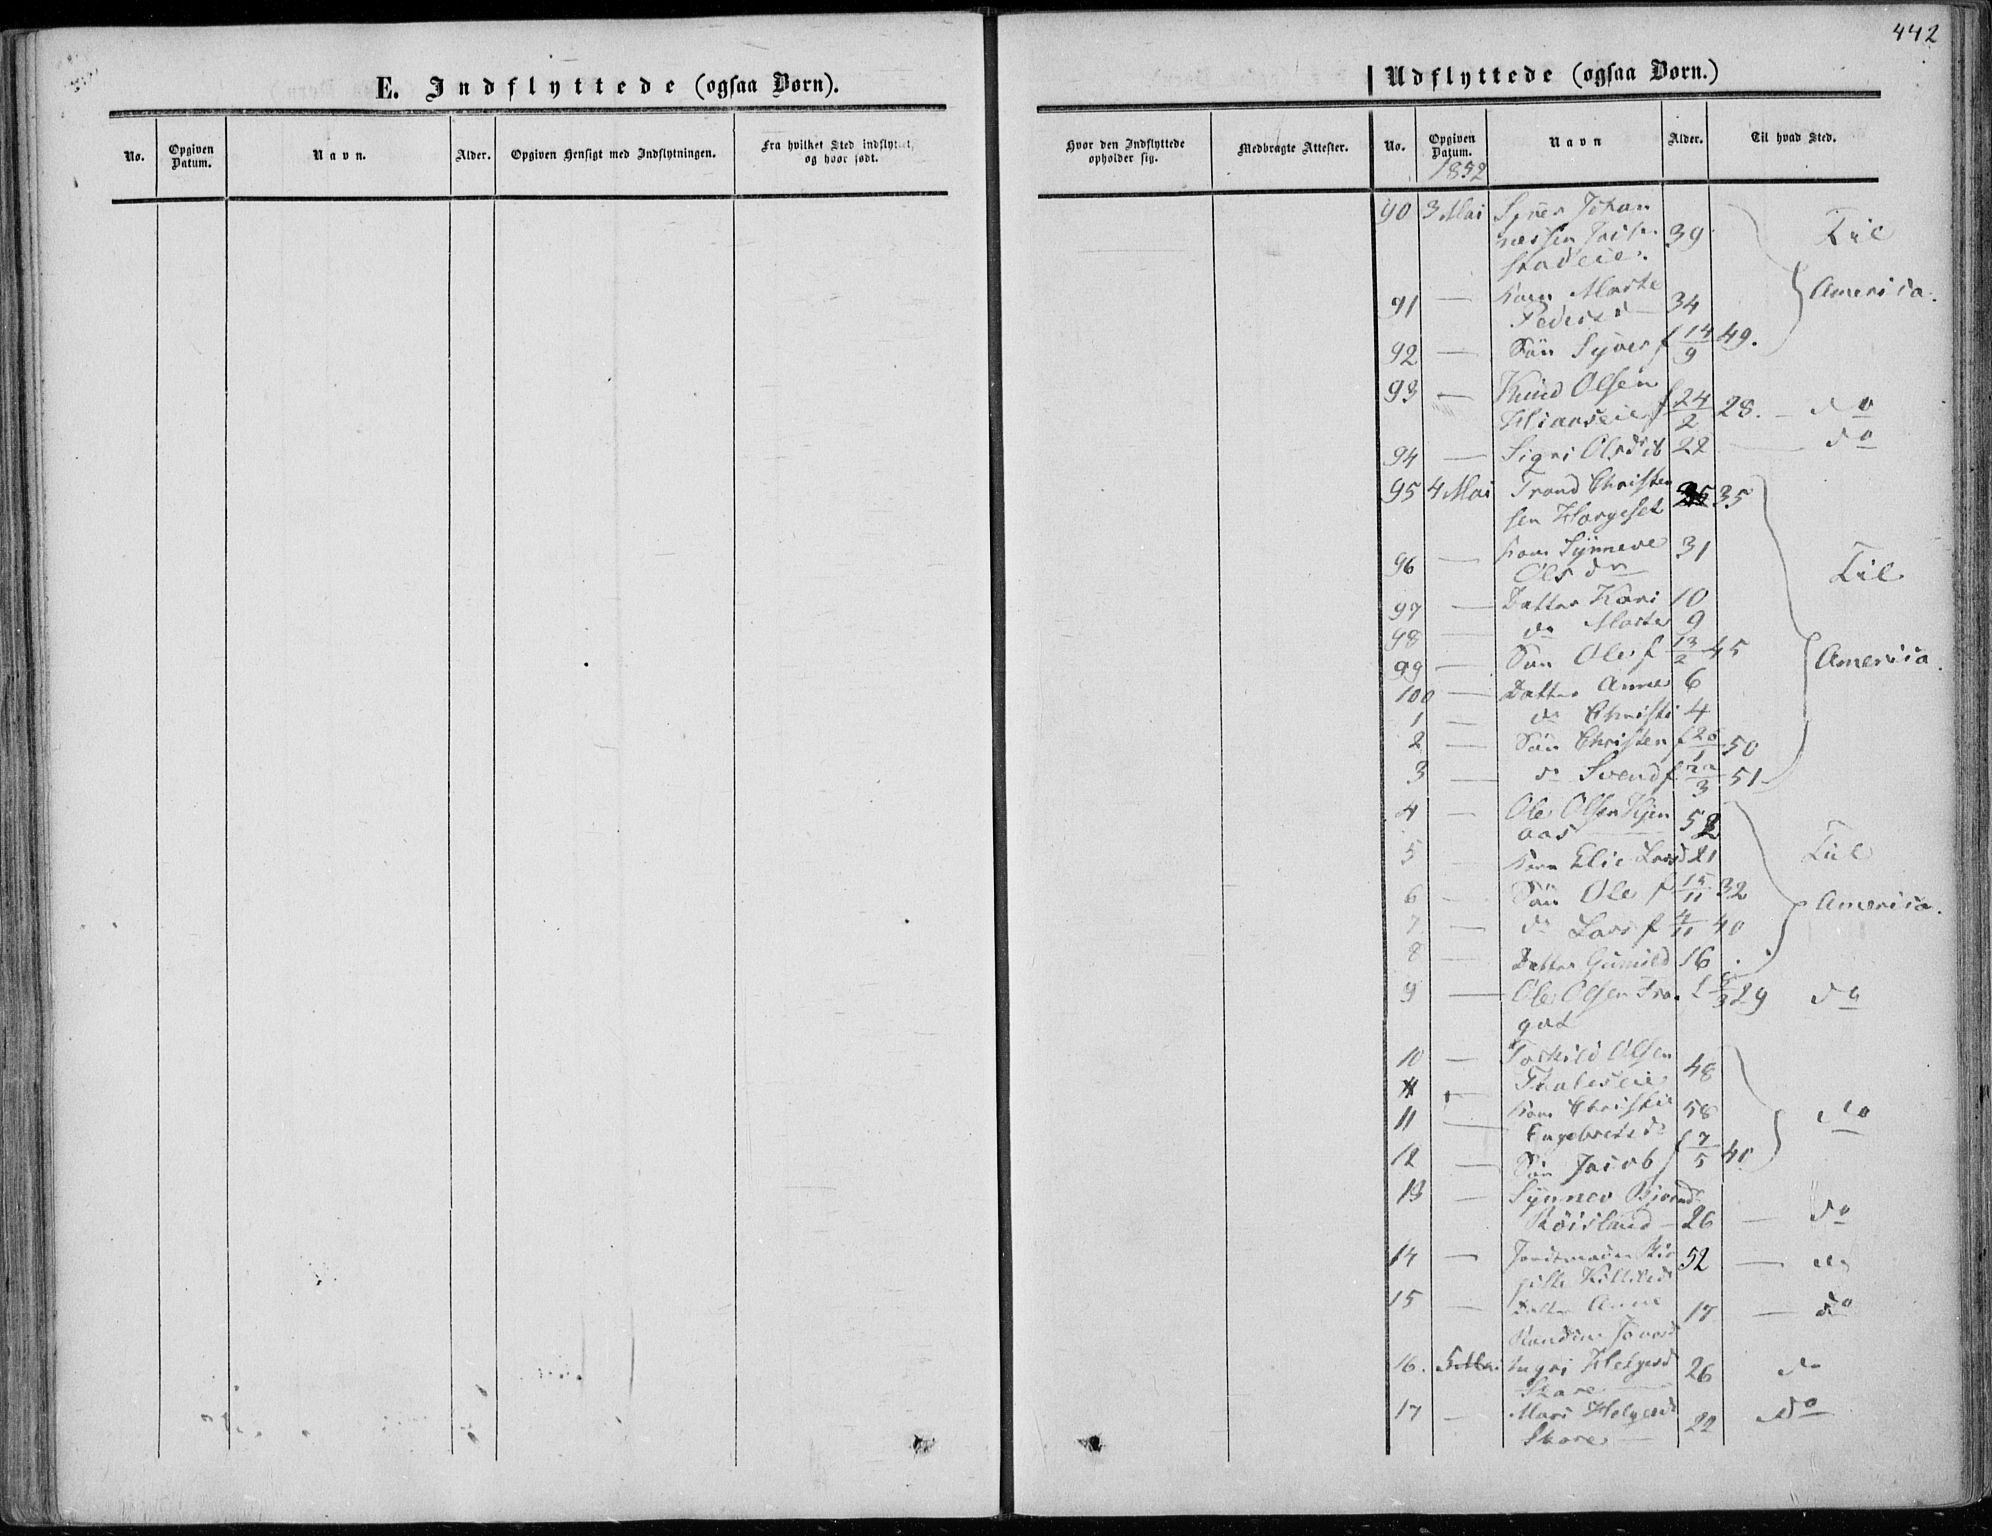 442
E. Indflyttede (ogsaa Børn).
No.
Opgiven Datum.
Navn.
Alder.
Opgiven Hensigt med Indflytningen.
Fra hvilket Sted indflyttet, og hvor født.
Udflyttede (ogsaa Børn.)
Hvor den Indflyttede opholder sig.
Medbragte Attester.
No.
Opgiven Datum.
Navn
Alder.
Til hvad Sted.
1852
90 3 Mai Syver Johan
nessen 39 Til
eie.
91 — Kone Marte America.
Pedersd — 34
92 — Søn Syver f 14/9 49.
93 — Knud Olsen
f 24/2 28. — do
94 — Sigri Olsdtr 22 — do
95 4 Mai Trond Christen
sen Horgeset 35
96 — Kone Synneve 31
Olsdr Til
97 — Datter Kari 10
98 — do Marte 9
99 — Søn Ole f 13/2 45 America.
100 — Datter Anne 6
1 — do Christi 4
2 — Søn Christen f 50
3 — do Svend f 51
4 — Ole Olsen
aas 52
5 Kone Elie Larsd 21 Til
6 — Søn Ole f 15/11 32
7 — do Lars f 4/11 40 America.
8 — Datter Gunild 16
9 — Ole Olsen 29 do
10 — Torkild Olsen
eie 48
11 — Kone Christie 58 do
Engebretsd
12 — Søn Jacob f 7/5 40
13 — Synnev Bjørnd
Røisland — 26 — do
14 — 52 — do
15 — Datter Anne 17 — do
16. 5 Mai Ingri Helgesd 26 do
Skare
17 — Mari Helgesd do
Skare — 22